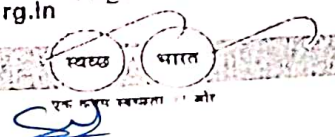 rg.in
स्वच्छ भारत
एक कदम स्वच्छता की ओर